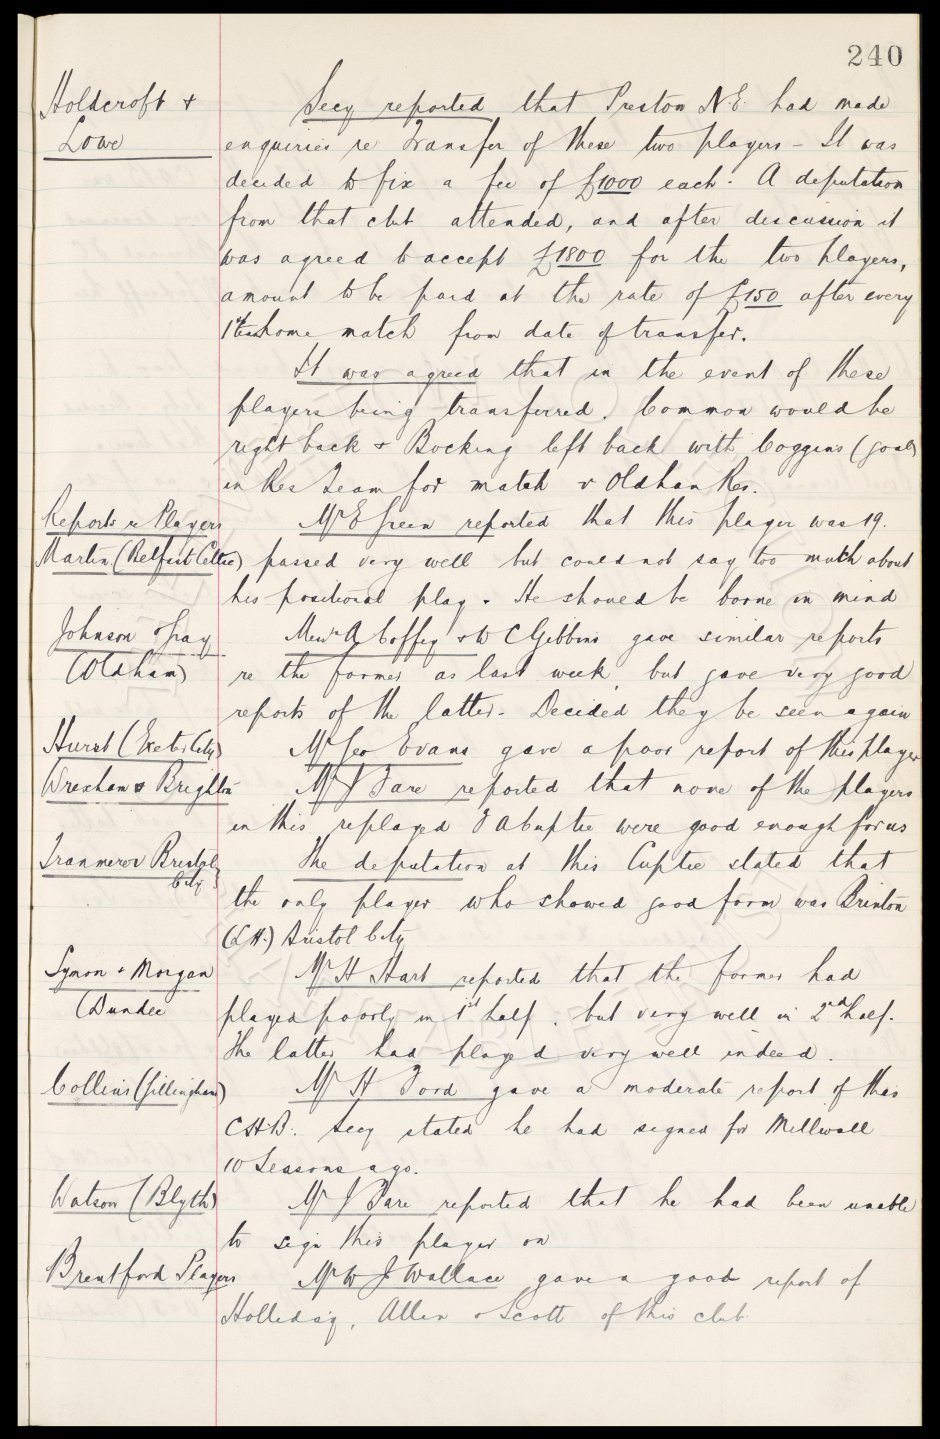 240
Holdcroft &
Lowe
Secy reported that Preston N.E. had made
enquiries re Transfer of these two players – It was
decided to fix a fee of £1000 each. A deputation
from that club attended, and after discussion it
was agreed to accept £1800 for the two players,
amount to be paid at the rate of £150 after every
1st team home match from date of transfer.
It was agreed that in the event of these
players being transferred. Common would be
right back & Bocking left back with Coggins (goal)
in Res Team for match v Oldham Res.
Reports re Players
Mr E Green reported that this player was 19.
Martin (Belfast Celtic) passed very well but could not say too much about
his positional play. He should be borne in mind
Johnson & Gray
(Oldham)
Messrs A Coffey & W C Gibbins gave similar reports
re the former as last week but gave very good
reports of the latter. Decided they be seen again
Hurst (Exeter City)
Mr Geo Evans gave a poor report of this player
Wrexham v Brighton
Mr J Fare reported that none of the players
in this replayed F A Cup tie were good enough for us
Tranmere v Bristol
City
The deputation at this Cup tie stated that
the only player who showed good form was Brinton
(L.H.) Bristol City
Symon & Morgan
(Dundee
Mr H Hart reported that the former had
played poorly in 1st half, but very well in 2nd half.
The latter had played very well indeed.
Collins (Gillingham)
Mr H Ford gave a moderate report of this
C.H.B. Secy stated he had signed for Millwall
10 Seasons ago.
Watson (Blyth)
Mr J Fare reported that he had been unable
to sign this player on
Brentford Players
Mr W J Wallace gave a good report of
Holliday, Allen & Scott of this club.